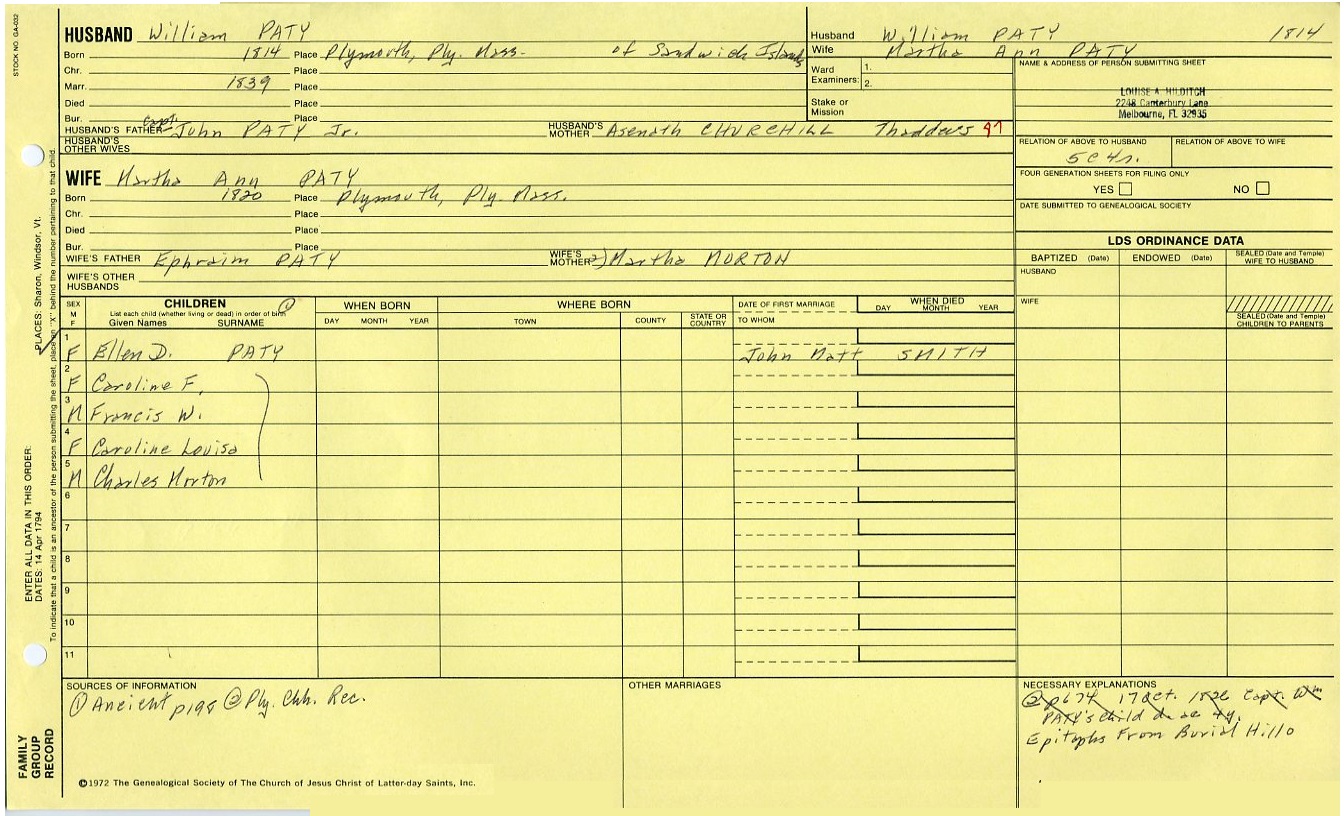 STOCK NO. GA-032
HUSBAND William PATY
Born 1814 Place Plymouth, Ply. Mass. of Sandwich Islands
Chr. Place
Marr. 1839 Place
Died Place
Bur. Place
HUSBAND'S FATHER Capt. John PATY Jr. HUSBAND'S MOTHER Asenath CHURCHILL Thaddeus 97
HUSBAND'S OTHER WIVES
Husband William PATY 1814
Wife Martha Ann PATY
Ward Examiners: 1.
2.
Stake or Mission
NAME & ADDRESS OF PERSON SUBMITTING SHEET
LOUISE A. HILDITCH
2248 Canterbury Lane
Melbourne, FL 32935
RELATION OF ABOVE TO HUSBAND RELATION OF ABOVE TO WIFE
5C 4r.
FOUR GENERATION SHEETS FOR FILING ONLY
YES NO
DATE SUBMITTED TO GENEALOGICAL SOCIETY
WIFE Martha Ann PATY
Born 1820 Place Plymouth, Ply. Mass.
Chr. Place
Died Place
Bur. Place
WIFE'S FATHER Ephraim PATY WIFE'S MOTHER 2) Martha MORTON
WIFE'S OTHER HUSBANDS
LDS ORDINANCE DATA
BAPTIZED (Date) ENDOWED (Date) SEALED (Date and Temple) WIFE TO HUSBAND
HUSBAND
WIFE
SEALED (Date and Temple) CHILDREN TO PARENTS
SEX M F CHILDREN ① WHEN BORN WHERE BORN DATE OF FIRST MARRIAGE WHEN DIED
List each child (whether living or dead) in order of birth
Given Names SURNAME DAY MONTH YEAR TOWN COUNTY STATE OR COUNTRY TO WHOM DAY MONTH YEAR
1 F Ellen D. PATY John Mott SMITH
2 F Caroline F.
3 M Francis W.
4 F Caroline Louisa
5 M Charles Morton
6
7
8
9
10
11
PLACES: Sharon, Windsor, Vt.
To indicate that a child is an ancestor of the person submitting the sheet, place an "X" behind the number pertaining to that child.
ENTER ALL DATA IN THIS ORDER:
DATES: 14 Apr 1794
FAMILY GROUP RECORD
SOURCES OF INFORMATION
① Ancient p198 ② Ply. Chh. Rec.
OTHER MARRIAGES
NECESSARY EXPLANATIONS
② p674 17 Oct. 1826 Capt. Wm
PATY's child d. ae 4y.
Epitaphs From Burial Hill
©1972 The Genealogical Society of The Church of Jesus Christ of Latter-day Saints, Inc.